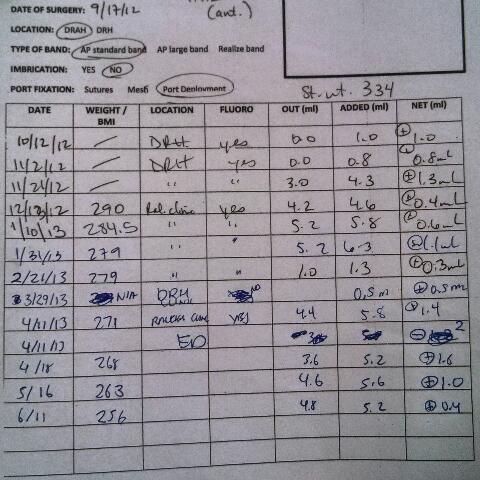 DATE OF SURGERY: 9/17/12
(ant.)
LOCATION: DRAH DRH
TYPE OF BAND: AP standard band AP large band Realize band
IMBRICATION: YES NO
PORT FIXATION: Sutures Mesh Port Deployment
St. wt. 334
DATE WEIGHT / BMI LOCATION FLUORO OUT (ml) ADDED (ml) NET (ml)
10/12/12 — DRH yes 0.0 1.0 +1.0
11/2/12 — DRH yes 0.0 0.8 0.8mL
11/21/12 — " " 3.0 4.3 +1.3mL
12/13/12 290 Ral. clinic yes 4.2 4.6 +0.4mL
1/10/13 284.5 " " 5.2 5.8 +0.6mL
1/31/13 279 " " 5.2 6.3
2/21/13 279 " " 1.0 1.3 +0.3mL
3/29/13 N/A DRH NO 0.5 +0.5
4/11/13 271 YES 4.4 5.8 +1.4
4/11/13 ED 2
4/18 268 3.6 5.2 +1.6
5/16 263 4.6 5.6 +1.0
6/11 256 4.8 5.2 +0.4